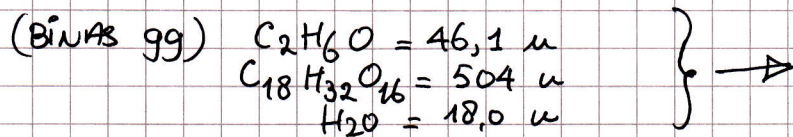 (BiNAS 99) C₂H₆O = 46,1 u
C₁₈H₃₂O₁₆ = 504 u
H₂O = 18,0 u